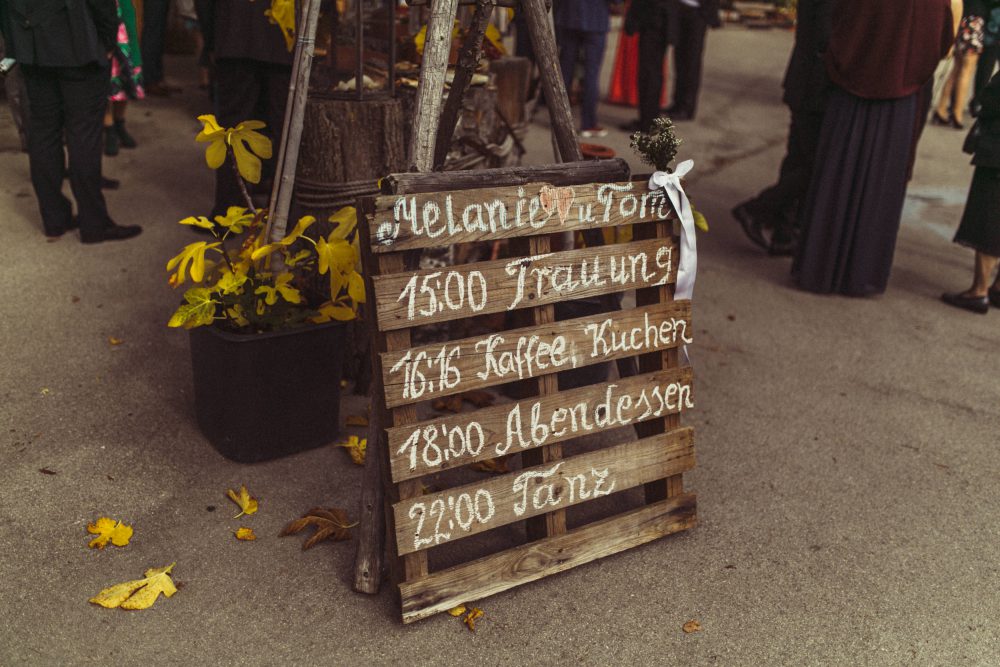 Melanie u Tom
15:00 Trauung
16:16 Kaffee, Kuchen
18:00 Abendessen
22:00 Tanz